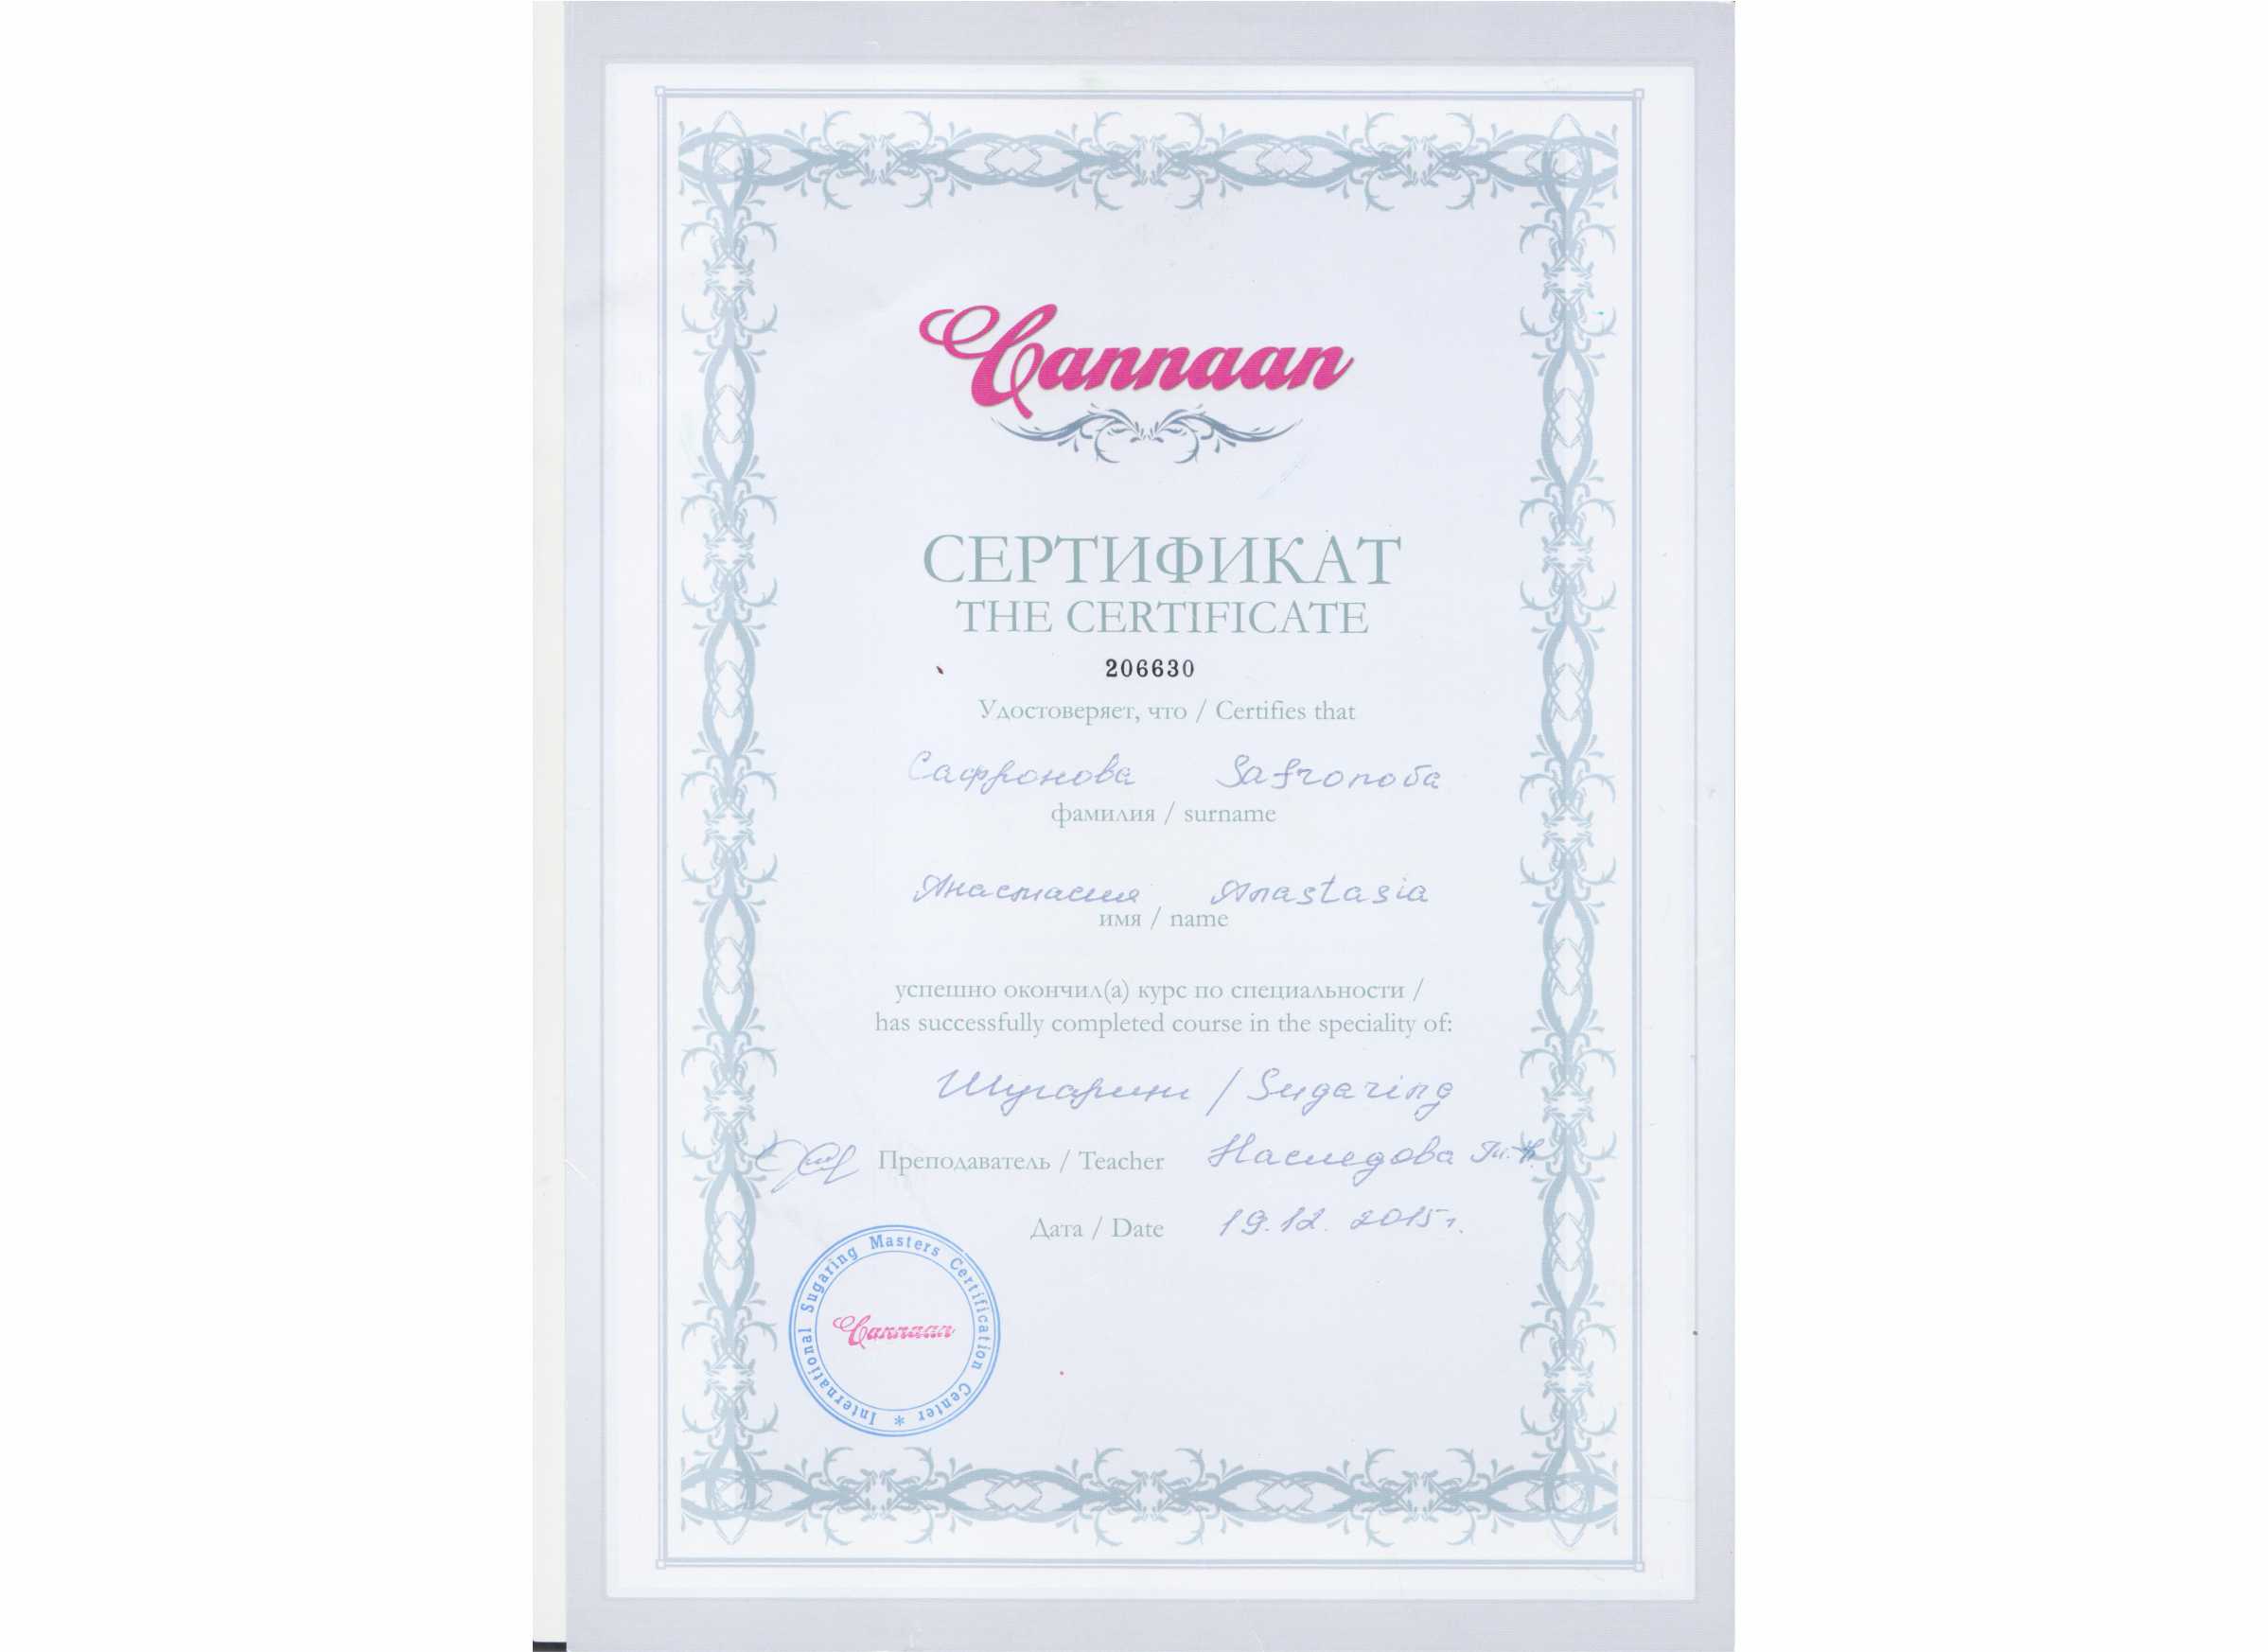 Cannaan
СЕРТИФИКАТ
THE CERTIFICATE
206630
Удостоверяет, что / Certifies that
Сафронова Safronova
фамилия / surname
Анастасия Anastasia
имя / name
успешно окончил(а) курс по специальности /
has successfully completed course in the speciality of:
Шугаринг / Sugaring
Преподаватель / Teacher Наследова
Дата / Date 19.12.2015г.
International Sugaring Masters Certification Center *
Cannaan